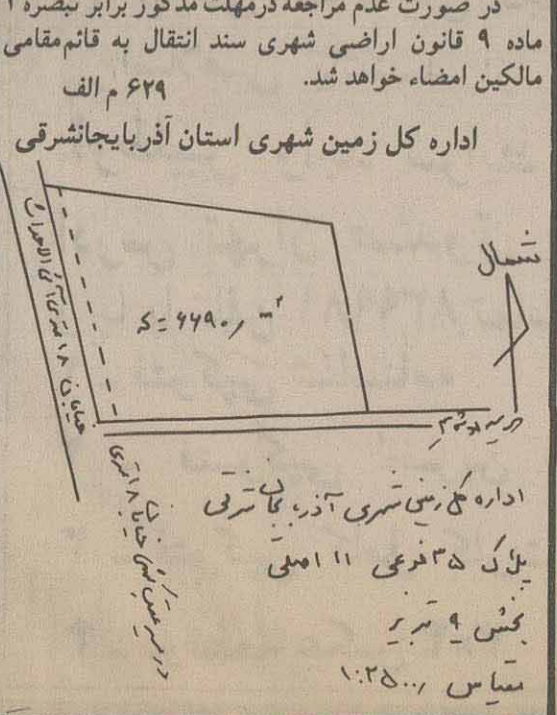 در صورت عدم مراجعه درمهلت مذکور برابر تبصره ۲
ماده ۹ قانون اراضی شهری سند انتقال به قائم‌مقامی
مالکین امضاء خواهد شد.
۶۲۹ م الف
اداره کل زمین شهری استان آذربایجانشرقی
شمال
S = ۶۶۹۰, m²
خیابان ۱۸ متری آتی الاحداث
در مسیر عقب نشینی خیابان ۱۸ متری
اداره کل زمین شهری آذربایجان شرقی
پلاک ۳۵ فرعی ۱۱ اصلی
بخش ۹ تبریز
مقیاس ۱:۲۵۰۰,